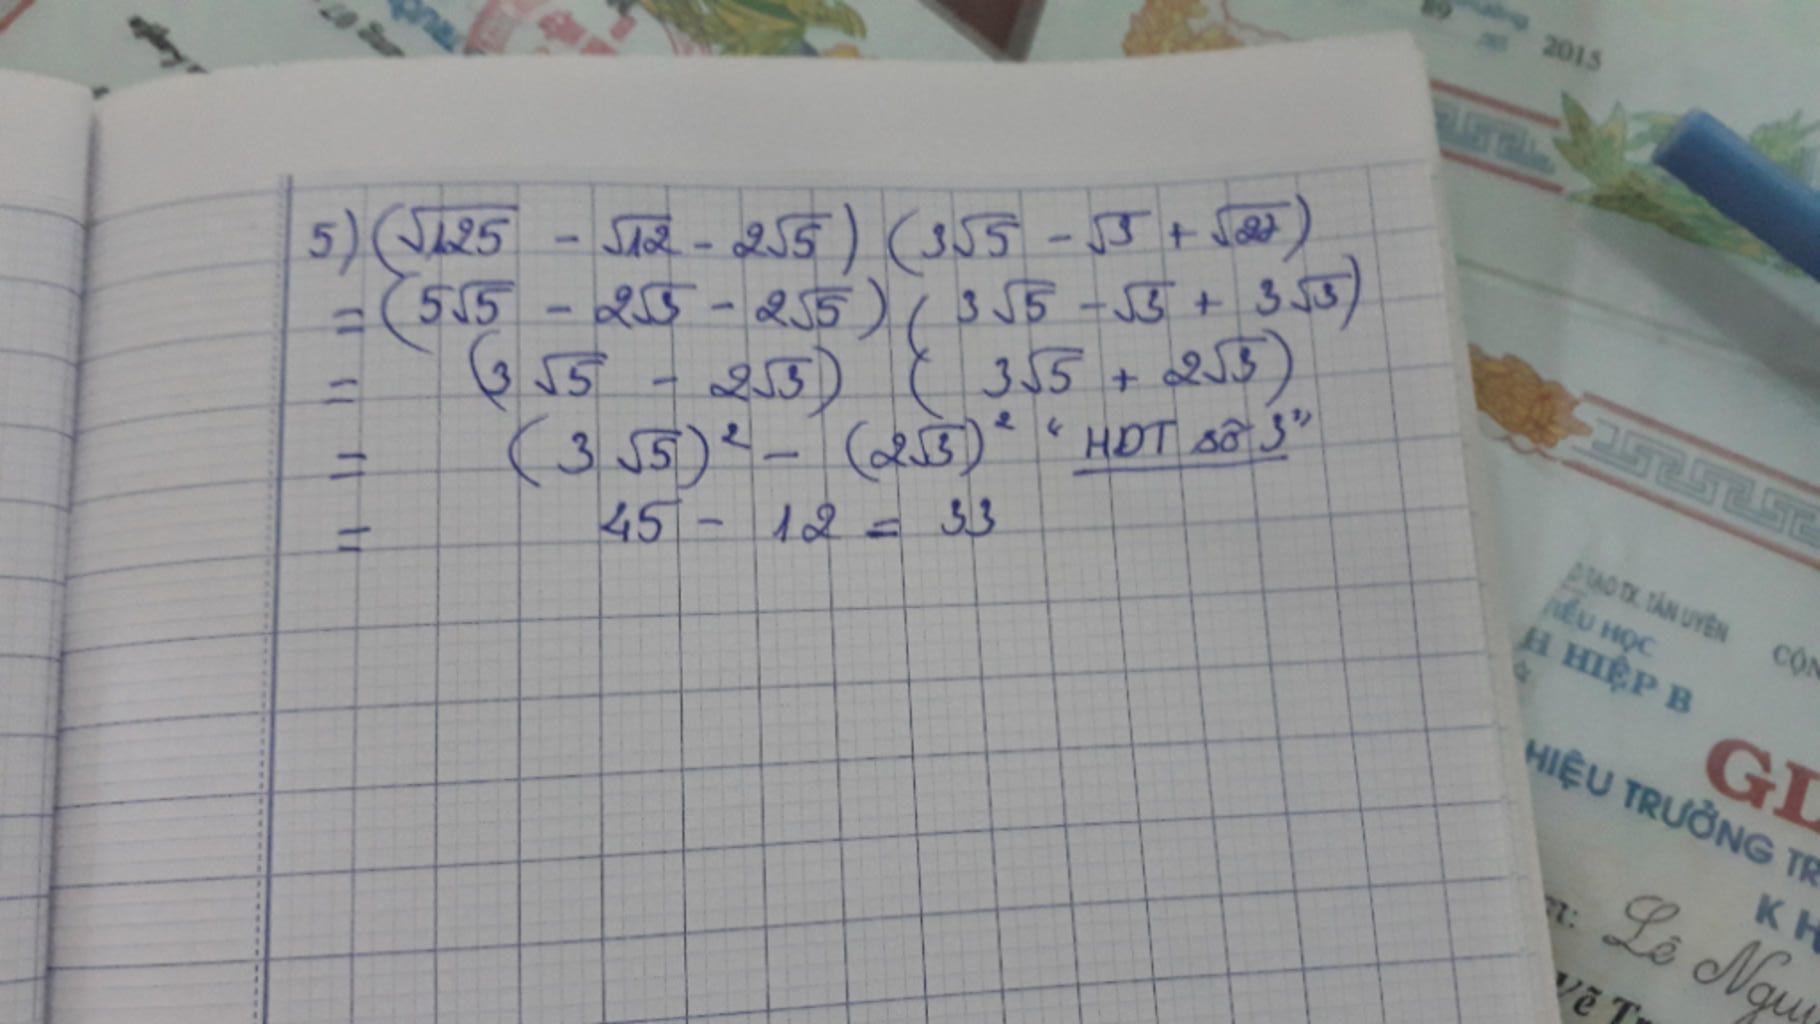 5) (√125 - √12 - 2√5) (3√5 - √3 + √27)
= (5√5 - 2√3 - 2√5) (3√5 - √3 + 3√3)
= (3√5 - 2√3) (3√5 + 2√3)
= (3√5)² - (2√3)² "HĐT số 3"
= 45 - 12 = 33
89
2015
TẠO TX. TÂN UYÊN
TIỂU HỌC
H HIỆP B
CỘN
GI
HIỆU TRƯỞNG TR
K H
Lê Ngu
Vẽ Tr